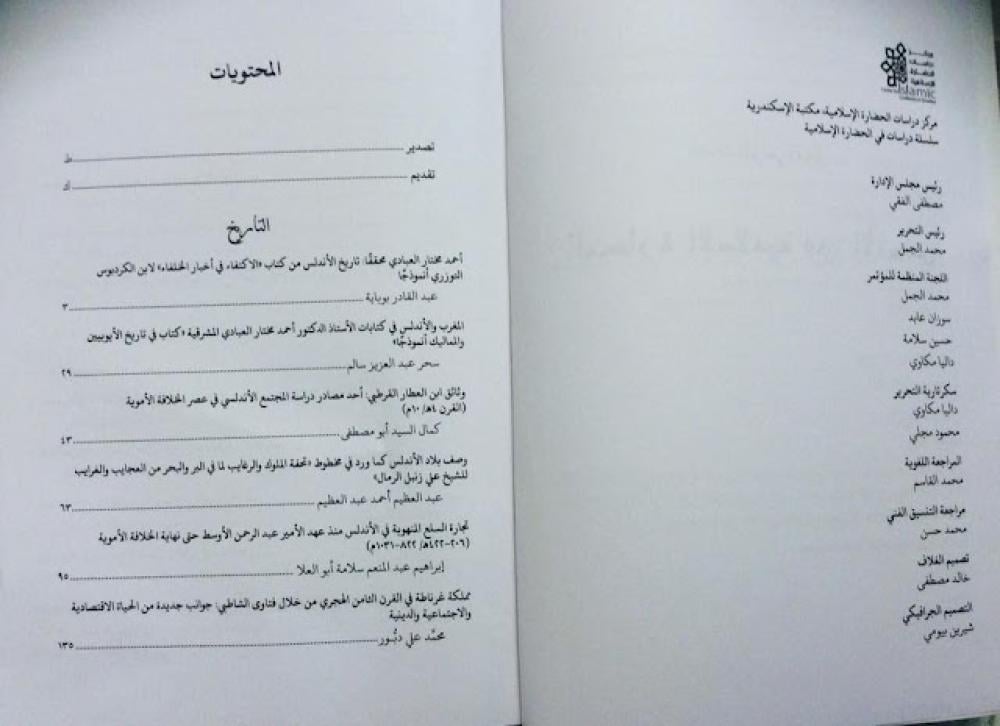 مركز
دراسات
الحضارة
الإسلامية
Islamic
مركز دراسات الحضارة الإسلامية، مكتبة الإسكندرية
سلسلة دراسات في الحضارة الإسلامية
رئيس مجلس الإدارة
مصطفى الفقي
رئيس التحرير
محمد الجمل
اللجنة المنظمة للمؤتمر
محمد الجمل
سوزان عابد
حسين سلامة
داليا مكاوي
سكرتارية التحرير
داليا مكاوي
محمود مجلي
المراجعة اللغوية
محمد القاسم
مراجعة التنسيق الفني
محمد حسن
تصميم الغلاف
خالد مصطفى
التصميم الجرافيكي
شيرين بيومي
المحتويات
تصدير ... ط
تقديم ... ك
التاريخ
أحمد مختار العبادي محققًا: تاريخ الأندلس من كتاب «الاكتفاء في أخبار الخلفاء» لابن الكردبوس
التوزري أنموذجًا
عبد القادر بوباية ... ٣
المغرب والأندلس في كتابات الأستاذ الدكتور أحمد مختار العبادي المشرقية «كتاب في تاريخ الأيوبيين
والمماليك أنموذجًا»
سحر عبد العزيز سالم ... ٢٩
وثائق ابن العطار القرطبي: أحد مصادر دراسة المجتمع الأندلسي في عصر الخلافة الأموية
(القرن ٤هـ/ ١٠م)
كمال السيد أبو مصطفى ... ٤٣
وصف بلاد الأندلس كما ورد في مخطوط «تحفة الملوك والرغايب لما في البر والبحر من العجايب والغرايب
للشيخ علي زنبل الرمال»
عبد العظيم أحمد عبد العظيم ... ٦٣
تجارة السلع المنهوبة في الأندلس منذ عهد الأمير عبد الرحمن الأوسط حتى نهاية الخلافة الأموية
(٢٠٦-٤٢٢هـ/ ٨٢٢-١٠٣١م)
إبراهيم عبد المنعم سلامة أبو العلا ... ٩٥
مملكة غرناطة في القرن الثامن الهجري من خلال فتاوى الشاطبي: جوانب جديدة من الحياة الاقتصادية
والاجتماعية والدينية
محمَّد علي دبُّور ... ١٣٥